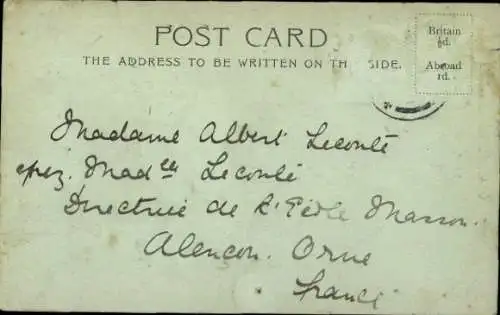 POST CARD
THE ADDRESS TO BE WRITTEN ON TH SIDE.
Britain
½d.
Abroad
1d.
Madame Albert Leconte
chez. Mad^elle Leconte
Directrice de l'Ecole Masson.
Alençon. Orne
France